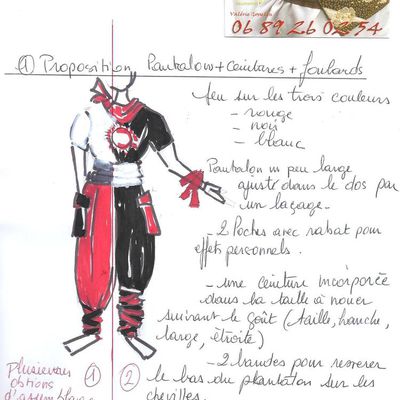 Valérie
06 89 26 02 54
① Proposition Pantalon + ceintures + foulards
Jeu sur les trois couleurs
- rouge
- noir
- blanc
Pantalon un peu large
ajusté dans le dos par
un laçage.
- 2 Poches avec rabat pour
effets personnels.
- une ceinture incorporée
dans la taille à nouer
suivant le goût (taille, hanche,
large, étroite)
- 2 bandes pour resserrer
le bas du plantaton sur les
chevilles.
plusieurs ① ②
options
d'assemblage